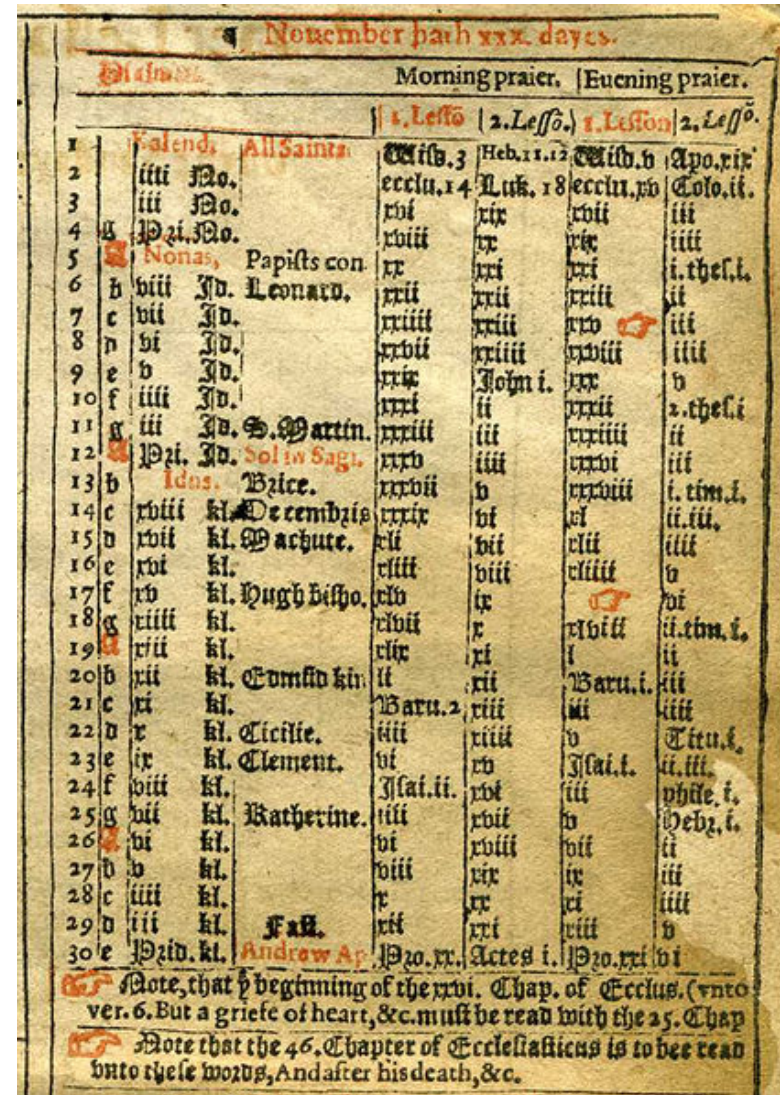 ¶ Nouember hath xxx. dayes.
Psalmes. Morning praier. | Euening praier.
1. Lessō | 2. Lessō. | 1. Lesson | 2. Lessō.
1 Kalend. All Saints. Wisd.3 Heb.11.12 Wisd.v Apo.xix
2 iiii No. ecclu.14 Luk. 18 ecclu.xv Colo.ii.
3 iii No. xvi xix xvii iii
4 g Pri. No. xviii xx xix iiii
5 A Nonas, Papists con. xx xxi xxi i.thes.i.
6 b viii Id. Leonard. xxii xxii xxiii ii
7 c vii Id. xxiiii xxiii xxv ☞ iii
8 d vi Id. xxvii xxiiii xxviii iiii
9 e v Id. xxix John i. xxx v
10 f iiii Id. xxxi ii xxxii 2.thes.i
11 g iii Id. S. Martin. xxxiii iii xxxiiii ii
12 A Pri. Id. Sol in Sagi. xxxv iiii xxxvi iii
13 b Idus. Brice. xxxvii v xxxviii i. tim.i.
14 c xviii kl. Decembris xxxix vi xl ii.iii.
15 d xvii kl. Machute. xli vii xlii iiii
16 e xvi kl. xliii viii xliiii v
17 f xv kl. Hugh bisho. xlv ix ☞ vi
18 g xiiii kl. xlvii x xlviii ii.tim.i.
19 A xiii kl. xlix xi l ii
20 b xii kl. Edmūd kin li xii Baru.i. iii
21 c xi kl. Baru.2 xiii iii iiii
22 d x kl. Cicilie. iiii xiiii v Titu.i.
23 e ix kl. Clement. vi xv Isai.i. ii.iii.
24 f viii kl. Isai.ii. xvi iii phile.i.
25 g vii kl. Katherine. iiii xvii v Hebr.i.
26 A vi kl. vi xviii vii ii
27 b v kl. viii xix ix iii
28 c iiii kl. x xx xi iiii
29 d iii kl. Fast. xii xxi xiii v
30 e Prid. kl. Andrew Ap Pro.xx. Actes i. Pro.xxi vi
☞ Note, that yͤ beginning of the xxvi. Chap. of Ecclus. (vnto
ver. 6. But a griefe of heart, &c. must be read with the 25. Chap
☞ Note that the 46. Chapter of Ecclesiasticus is to bee read
vnto these words, And after his death, &c.